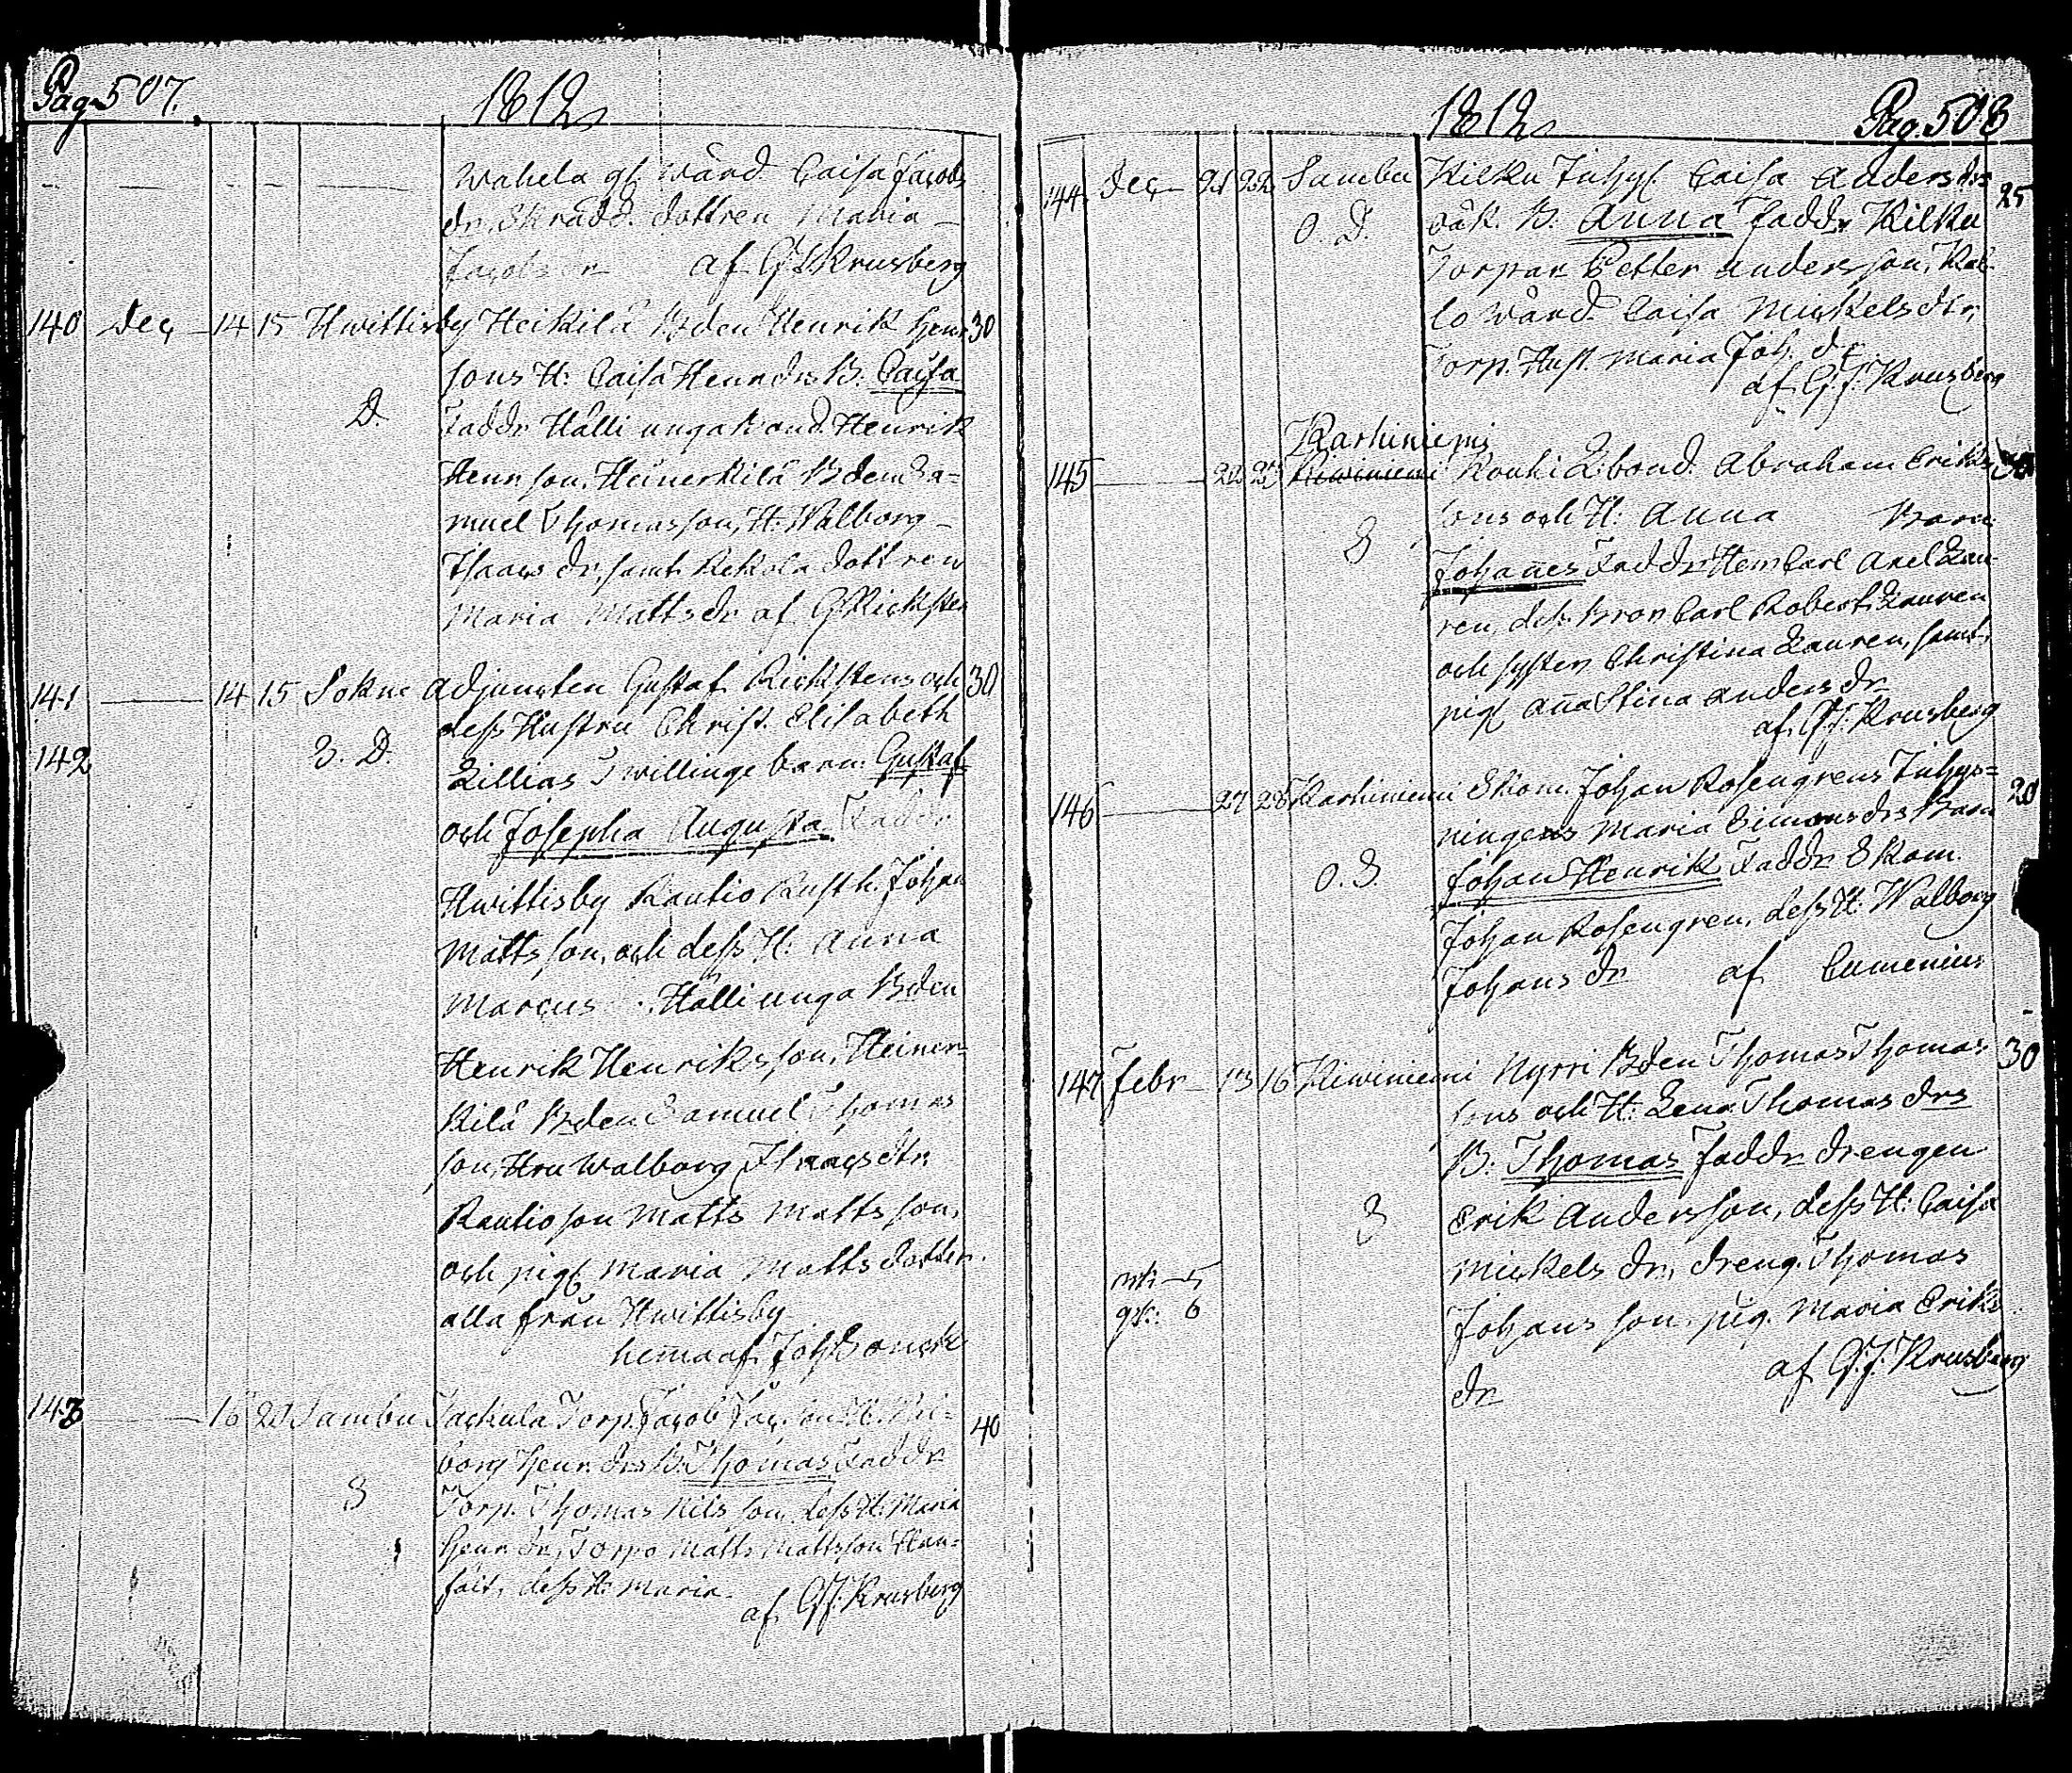 Pag. 507.
1812
Wahela gl. Wärd. Caisa Jacobs
dr, Skrädd. dottren Maria
Jacobs dr af G J Krusberg
140 Dec 14 15 Hwittisby Heikilä Bden Henrik Henr 30
sons H: Caisa Henr drs B: Caisa
D. Faddr Hälli unga bond. Henrik
Henr son, Heinerkilä Bden Sa-
muel Thomasson, H: Walborg
Isaacs dr, samt Rekola dottren
Maria Matts dr af G Ricksten
141 14 15 Sokne Adjuncten Gustaf Rickstens och 30
dess Hustru Christ. Elisabeth
142 S. D. Lillias Twillinge barn Gustaf
och Josepha Augusta Faddr
Hwittisby Rautio Rusth. Johan
Matts son, och dess H: Anna
Marcus . Hälli unga Bden
Henrik Henriksson, Heiner-
kilä Bden Samuel Thomas
son, Hru Walborg Isaacs dtr,
Rautio son Matts Matts son,
och pig. Maria Matts dotter
alla från Hwittisby
hema af Joh
143 16 20 Sambu Jackula Torp. Jacob Jac. son H: Wal- 40
borg Henr. drs B: Thomas Faddr
S Torp. Thomas Nils son, dess H: Maria
Henr dr, Torpa Matts Mattsson
dess H: Maria
af G J: Krusberg
1812
Pag. 508
144 Dec 21 22 Sambu Kilku Inhys. Caisa Anders drs 25
O. D. oäk. B: Anna Faddr Kilku
Torpar Petter Andersson, Kal-
lo Wärd. Caisa Mickels dtr,
Torp. Hust. Maria Joh. dr
af G J: Krusberg
Karhiniemi
145 22 25 Kiwiniemi Kouhi Lbond. Abraham Eriks 30
sons och H: Anna Barn
S Johañes Faddr Herr Carl Axel Lau-
ren, dess Bror Carl Robert Lauren
och syster Christina Lauren, samt
pig Aña Stina Anders dr
af G J: Krusberg
146 27 28 Karhiniemi Skom. Johan Rosengrens Inhys- 20
ningens Maria Simons drs Barn
O. S. Johan Henrik Faddr Skom.
Johan Rosengren, dess H: Walborg
Johans dr af Cumenius
147 Febr 13 16 Kiwiniemi Nyrri Bden Thomas Thomas 30
sons och H: Lena Thomas drs
B: Thomas Faddr drengen
S Erik Andersson, dess H: Caisa
Mickels dr, dreng. Thomas
mk 5
gk: 6 Johans son, pig. Maria Eriks
dr af G: J: Krusberg